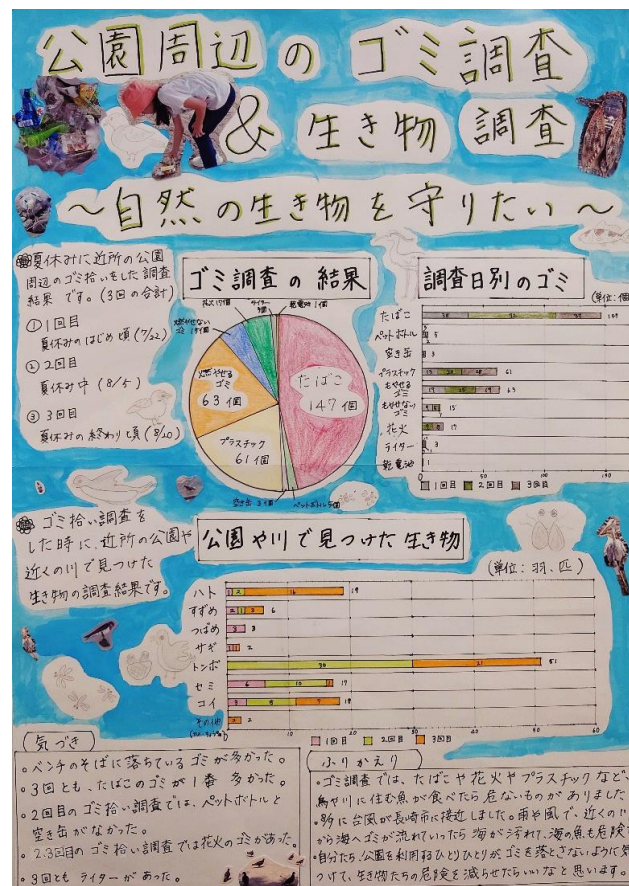 公園周辺のゴミ調査
& 生き物 調査
～自然の生き物を守りたい～
夏休みに近所の公園
周辺のゴミ拾いをした調査
結果です。(3回の合計)
①1回目
夏休みのはじめ頃(7/22)
②2回目
夏休み中(8/5)
③3回目
夏休みの終わり頃(8/20)
ゴミ調査の結果
花火17個
ライター
乾電池1個
燃やせない
ゴミ15個
燃やせる
ゴミ
63個
たばこ
147個
プラスチック
61個
空き缶3個
ペットボトル5個
調査日別のゴミ
(単位:個)
たばこ
ペットボトル 5
空き缶 3
プラスチック 61
もやせるゴミ 63
もやせない
ゴミ 15
花火 17
ライター 3
乾電池 1
0 50 100 150
1回目 2回目 3回目
ゴミ拾い調査を
した時に、近所の公園や
近くの川で見つけた
生き物の調査結果です。
公園や川で見つけた生き物
(単位:羽、匹)
ハト 1 2 16 19
すずめ 2 1 3 6
つばめ 3 3
サギ 2
トンボ 30 21 51
セミ 6 10 17
コイ 3 8 7 18
その他 2 2
0 10 20 30 40 50 60
1回目 2回目 3回目
気づき
・ベンチのそばに落ちているゴミが多かった。
・3回とも、たばこのゴミが1番多かった。
・2回目のゴミ拾い調査では、ペットボトルと
空き缶がなかった。
・2.3回目のゴミ拾い調査では花火のゴミがあった。
・3回ともライターがあった。
ふりかえり
・ゴミ調査では、たばこや花火やプラスチックなど、
鳥や川に住む魚が食べたら危ないものがありました
に台風が長崎市に接近しました。雨や風で、近くの川
から海へゴミが流れていったら海が汚れて、海の魚も危険で
・自分たち、公園を利用するひとりひとりが、ゴミを落とさないように気
つけて、生き物たちの危険を減らせたらいいなと思います。